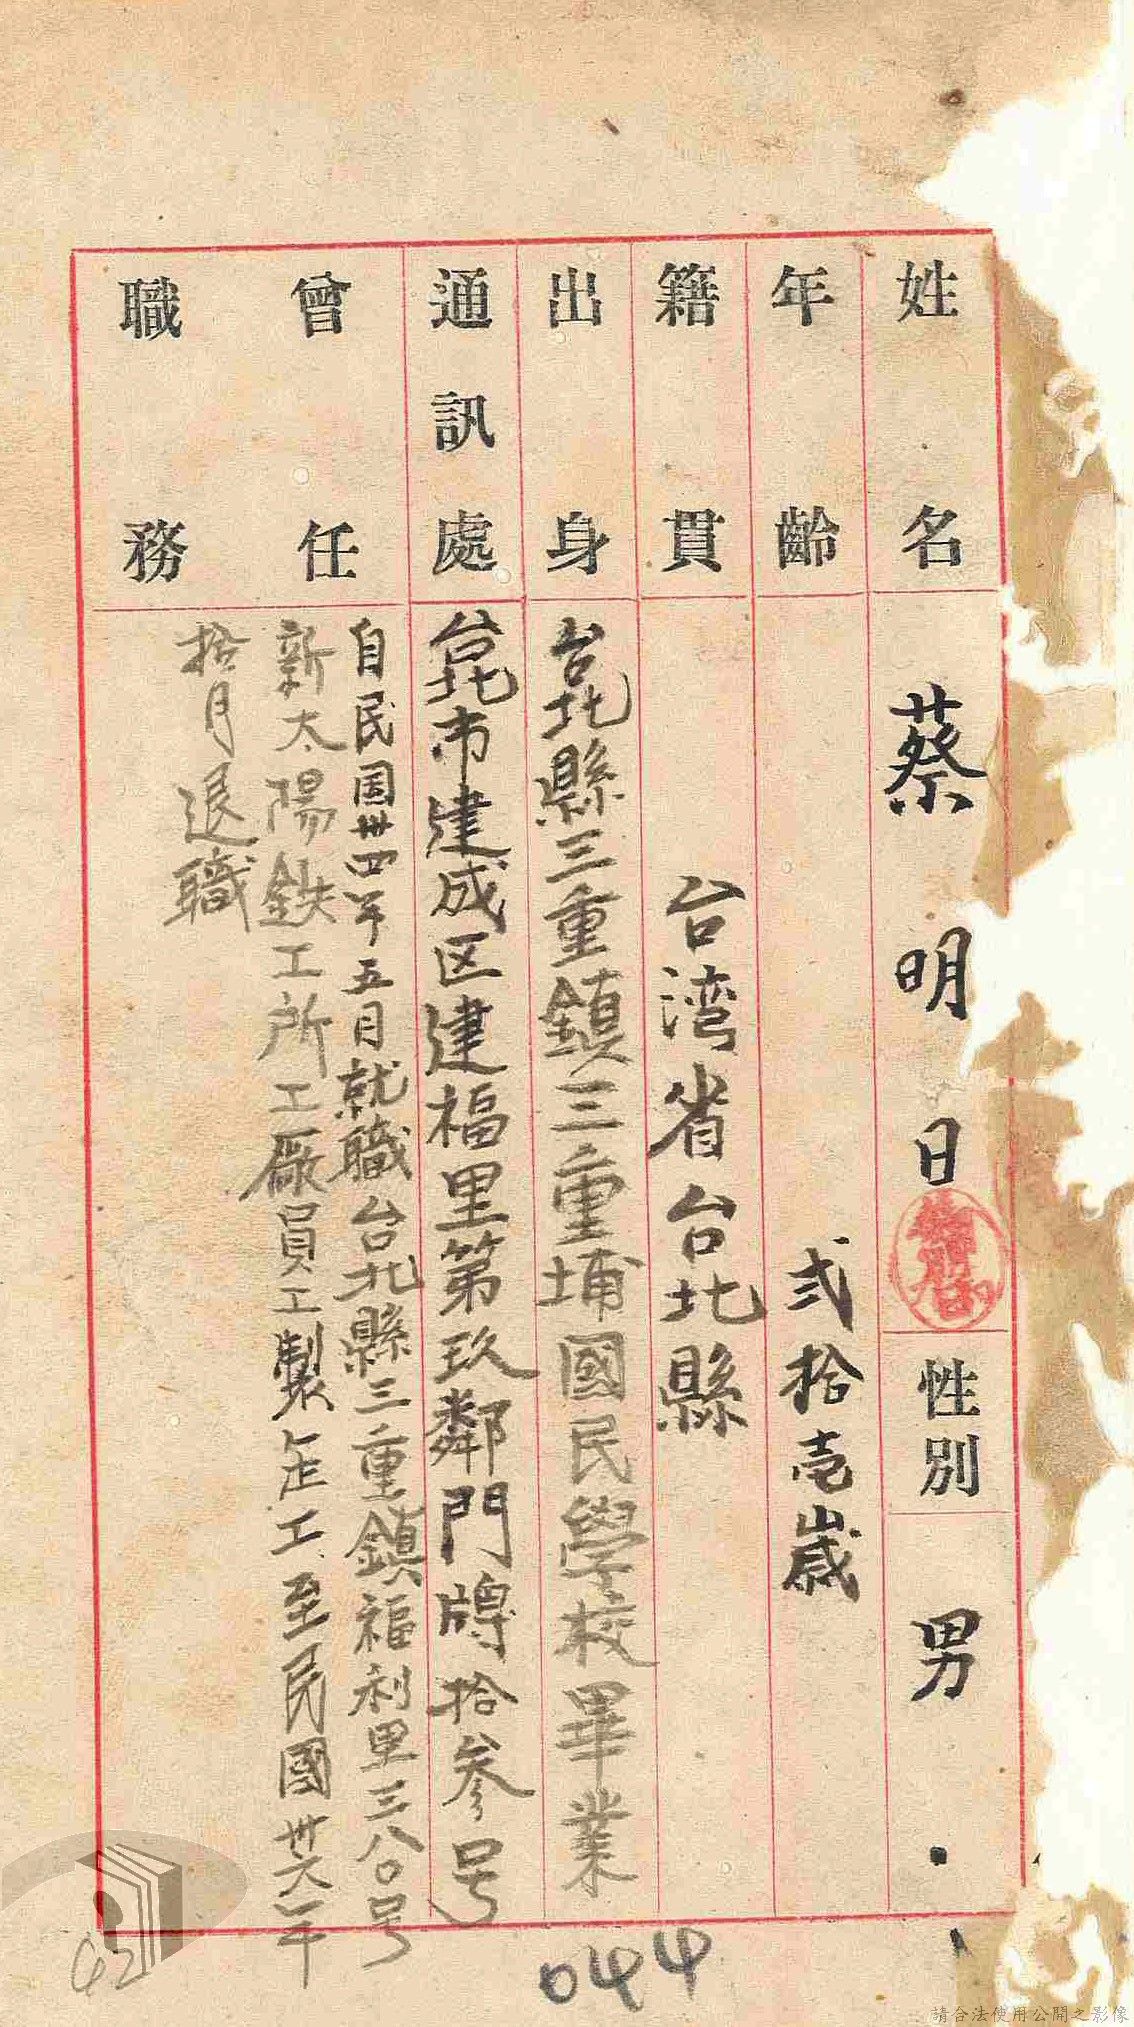 姓名 蔡明日
性別 男
年齡 弍拾壱歲
籍貫 台湾省台北縣
出身 台北縣三重鎮三重埔國民學校畢業
通訊處 台北市建成区建福里第玖鄰門牌拾参号
曾任職務
自民国卅四年五月就職台北縣三重鎮福利里三八〇号
新太陽鉄工所工廠員工製缶工至民國卅六年
拾月退職
044
42
請合法使用公開之影像